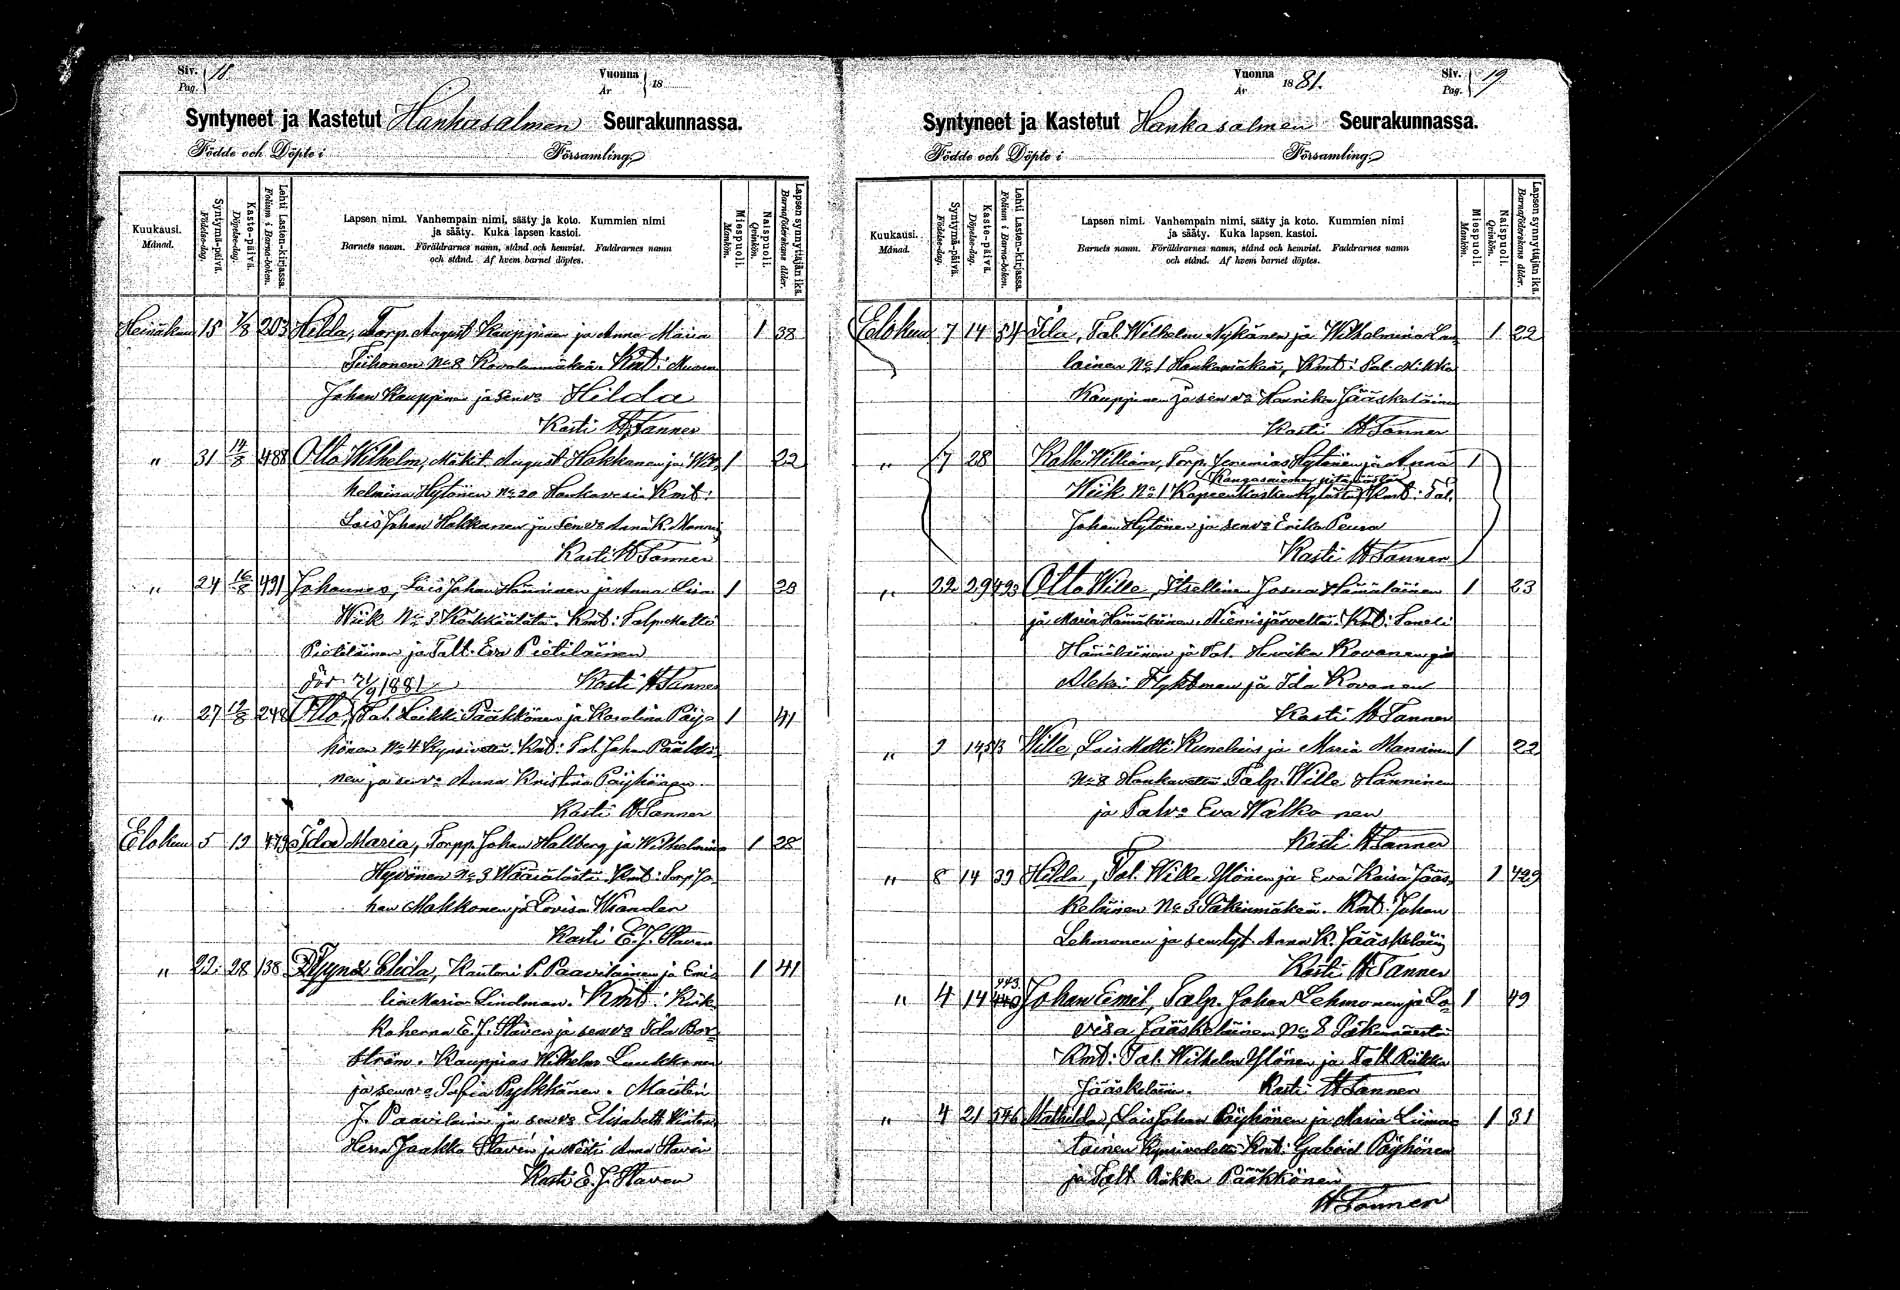 Siv. Pag. 18
Vuonna År 18
Syntyneet ja Kastetut Hankasalmen Seurakunnassa.
Födde och Döpte i Församling
Kuukausi. Månad.
Syntymä-päivä. Födelse-dag.
Kaste-päivä. Döpelse-dag.
Lehti Lasten-kirjassa. Folium i Barna-boken.
Lapsen nimi. Vanhempain nimi, sääty ja koto. Kummien nimi
ja sääty. Kuka lapsen kastoi.
Barnets namn. Föräldrarnes namn, stånd och hemvist. Faddrarnes namn
och stånd. Af hvem barnet döptes.
Miespuoli. Mankön.
Naispuoli. Qvinkön.
Lapsen synnyttäjän ikä. Barnaföderskans ålder.
Heinäkuu 15 7/8 203 Hilda, Torp. August Kauppinen ja Anna Maria 1 38
Tiihonen No 8 Kmt:
Johan Kauppinen ja senva Hilda
Kasti H Tanner
" 31 14/8 488 Otto Wilhelm, Mäkit. August Hakkanen ja Wil- 1 22
helmina Hytönen No 20 Hankavesia Kmt:
Lois Johan Hakkanen ja senva Anna K.
Kasti H Tanner
" 24 16/8 491 Johannes, Lois Johan Hänninen ja Anna Lisa 1 23
Wiik No 3 Kmt: Talp. Matti
Pietiläinen ja Talt. Eva Pietiläinen
1881 Kasti H Tanner
" 27 19/8 248 Otto, Tal. Heikki Pääkkönen ja Karolina Päyg- 1 41
hönen No 4 Kmt: Tal. Johan Pääkkö-
nen ja senva Anna Kristina Päyhönen
Kasti H Tanner
Elokuu 5 19 479 Ida Maria, Torpp. Johan Hallberg ja Wilhelmina 1 28
Hyvönen No 3 Kmt: Torp. Jo-
han Makkonen ja Lovisa Wiander
Kasti E. J. Staven
" 22 28 138 Elida, Kanttori P. Paavilainen ja Emi- 1 41
lia Maria Lindman. Kmt: Kirk-
koherra E. J. Staven ja senva Ida Bor-
ström. Kauppias Wilhelm Luukkonen
ja senva Sofia Pylkkänen.
J. Paavilainen ja senva Elisabeth
Herra Jaakko Staven ja Anna Staven
Kasti E. J. Staven
Vuonna År 1881.
Siv. Pag. 19
Syntyneet ja Kastetut Hankasalmen Seurakunnassa.
Födde och Döpte i Församling
Kuukausi. Månad.
Syntymä-päivä. Födelse-dag.
Kaste-päivä. Döpelse-dag.
Lehti Lasten-kirjassa. Folium i Barna-boken.
Lapsen nimi. Vanhempain nimi, sääty ja koto. Kummien nimi
ja sääty. Kuka lapsen kastoi.
Barnets namn. Föräldrarnes namn, stånd och hemvist. Faddrarnes namn
och stånd. Af hvem barnet döptes.
Miespuoli. Mankön.
Naispuoli. Qvinkön.
Lapsen synnyttäjän ikä. Barnaföderskans ålder.
Elokuu 7 14 54 Ida, Tal. Wilhelm Nykänen ja Wilhelmina Lau- 1 22
lainen No 1 Hankamäkeä, Kmt: Tal.
Kauppinen ja senva Henrika Jääskeläinen
Kasti H Tanner
" 7 28 Kalle William, Torp. Jeremias Hytönen ja Anna 1
Kangasniemen pitäjästä
Wiik No 1 Kmt: Tal.
Johan Hytönen ja senva Erika Peura
Kasti H Tanner
" 22 29 493 Otto Wille, Itsellinen Josua Hämäläinen 1 23
ja Maria Hämäläinen, Niemisjärveltä. Kmt:
Hämäläinen ja Tal. Henrika Kovanen ja
Aleksi Flyktman ja Ida Kovanen
Kasti H Tanner
" 9 14 513 Wille, Lois Matti Kunelius ja Maria Manninen 1 22
No 8 Talp. Wille Hänninen
ja Talva Eva Walkonen
Kasti H Tanner
" 8 14 39 Hilda, Tal. Wille Ylönen ja Eva Kaisa Jääs- 1 429
keläinen No 3 Säkinmäkeä. Kmt: Johan
Lehmonen ja Anna K. Jääskeläin
Kasti H Tanner
" 4 14 443 Johan Eemil, Talp. Johan Lehmonen ja Lo- 1 49
visa Jääskeläinen No 8
Kmt: Tal. Wilhelm Ylönen ja Talt. Riikka
Jääskeläin. Kasti H Tanner
" 4 21 546 Mathilda, Lois Johan Päyhönen ja Maria Liima- 1 31
tainen Kmt: Gabriel Päyhönen
ja Talt. Riikka Pääkkönen
H Tanner